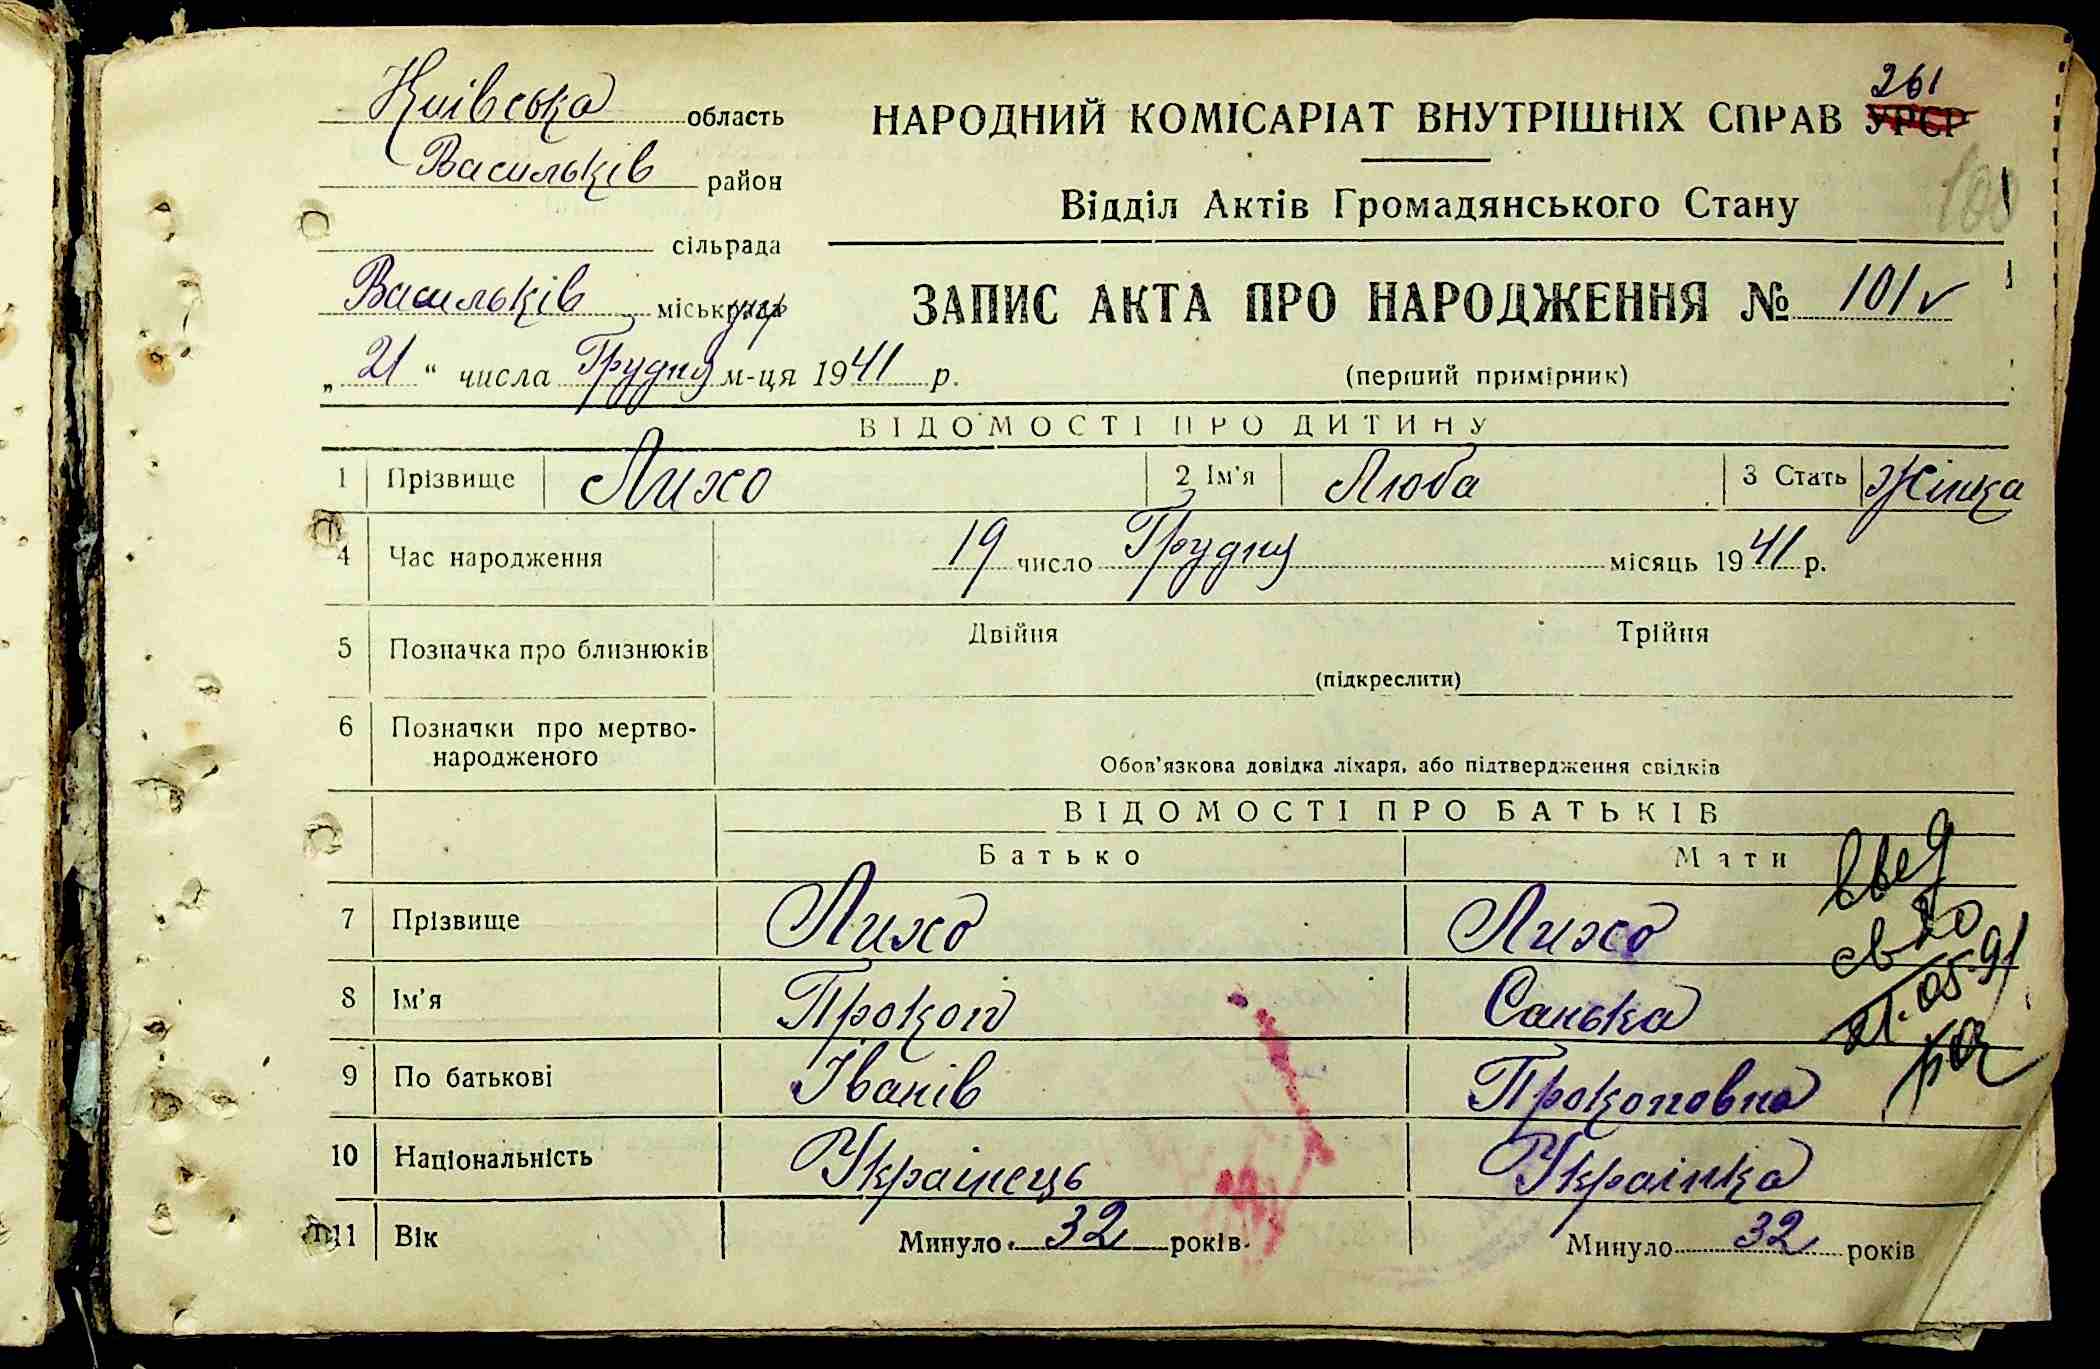 261
Київська область
НАРОДНИЙ КОМІСАРІАТ ВНУТРІШНІХ СПРАВ УРСР
Васильків район
Відділ Актів Громадянського Стану
100
сільрада
Васильків міськрада
ЗАПИС АКТА ПРО НАРОДЖЕННЯ № 101
„21“ числа Грудня м-ця 1941 р.
(перший примірник)
ВІДОМОСТІ ПРО ДИТИНУ
1 Прізвище Лихо 2 Ім'я Люба 3 Стать Жінка
4 Час народження 19 число Грудня місяць 1941 р.
5 Позначка про близнюків Двійня Трійня
(підкреслити)
6 Позначки про мертво-
народженого
Обов'язкова довідка лікаря, або підтвердження свідків
ВІДОМОСТІ ПРО БАТЬКІВ
Батько Мати
7 Прізвище Лихо Лихо
8 Ім'я Прокоп Санька
9 По батькові Іванів Прокоповна
10 Національність Українець Українка
11 Вік Минуло 32 років Минуло 32 років
21.05.91